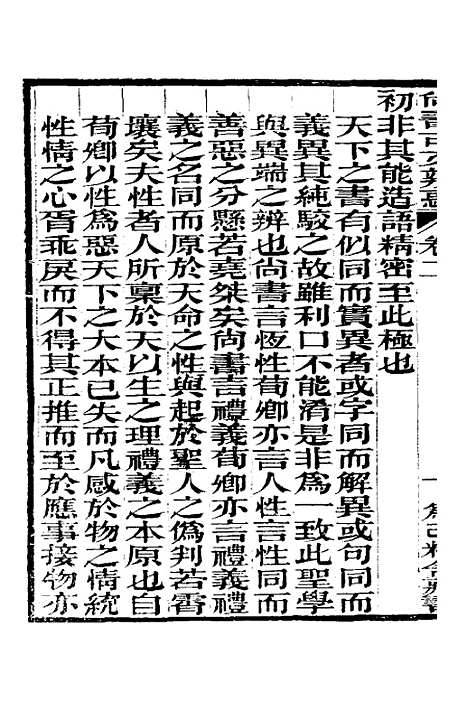 初非其能造語精密至此極也
天下之書有似同而實異者或字同而解異或句同而
義異其純駁之故雖利口不能淆是非為一致此聖學
與異端之辨也尚書言恆性荀鄉亦言人性言性同而
善惡之分懸若堯桀矣尚書言禮義荀鄉亦言禮義禮
義之名同而原於天命之性與起於聖人之偽判若霄
壤矣夫性者人所稟於天以生之理禮義之本原也自
荀鄉以性為惡天下之大本已失而凡感於物之情統
性情之心胥乖戾而不得其正推而至於應事接物亦